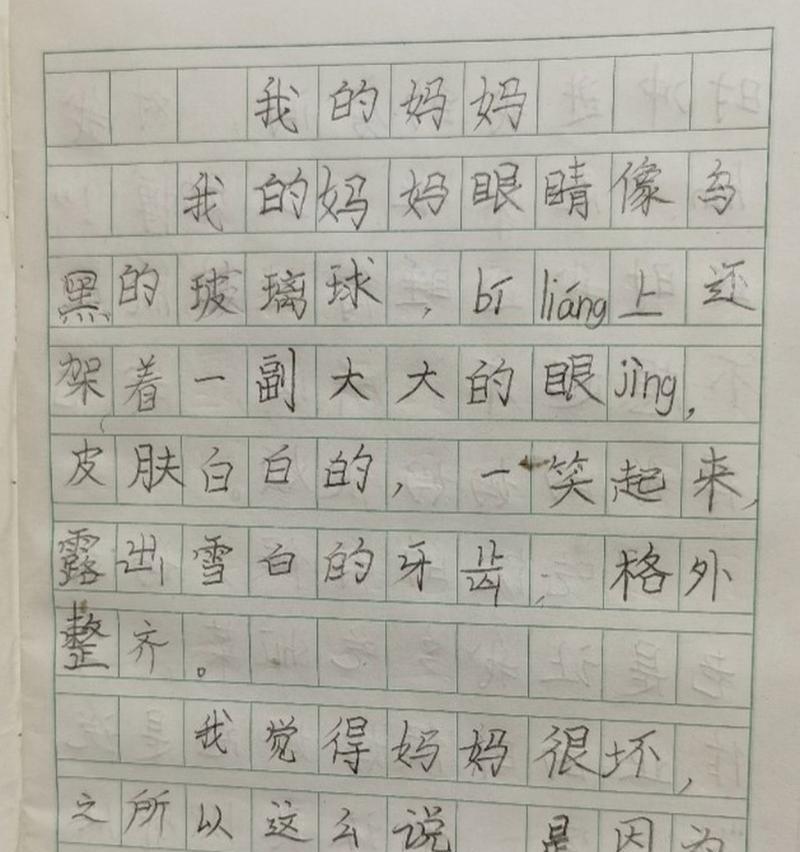 我的妈妈
我的妈妈眼睛像乌
黑的玻璃球，bí liáng上还
架着一副大大的眼jìng，
皮肤白白的，一笑起来，
露出雪白的牙齿，格外
整齐。
我觉得妈妈很坏，
之所以这么说 是因为